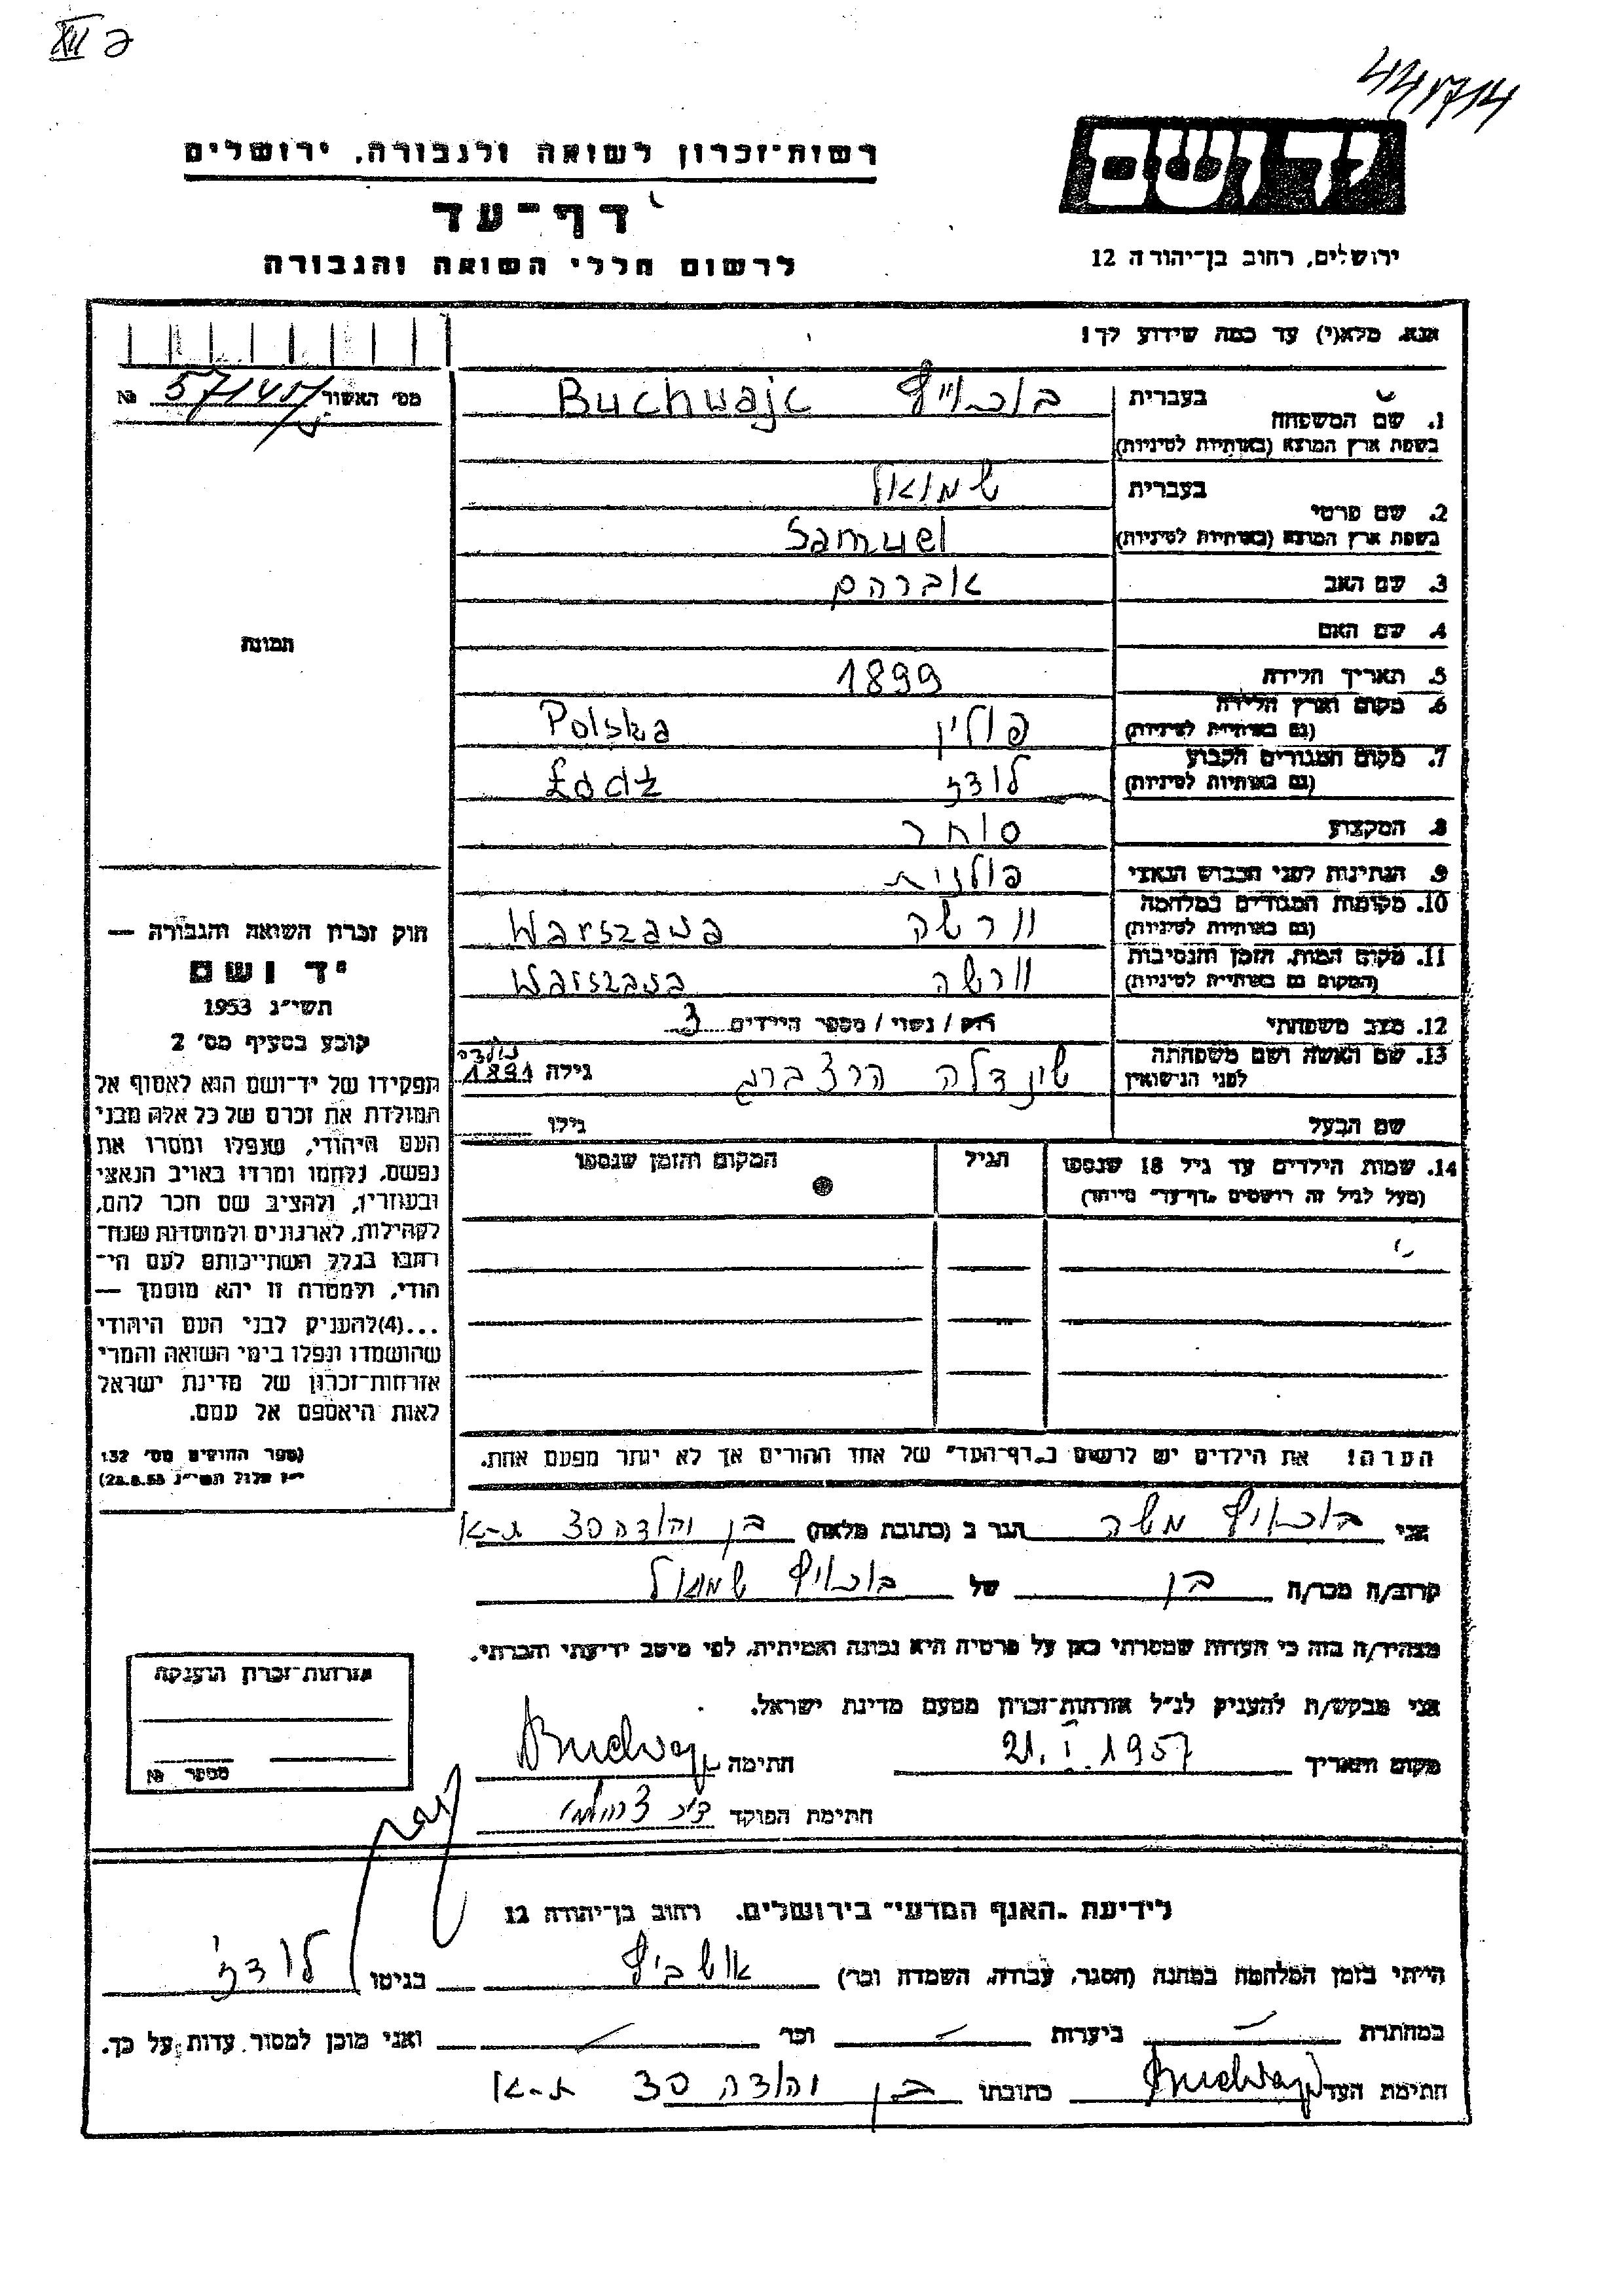 XII ב
רשות־זכרון לשואה ולגבורה, ירושלים
דף־עד
לרשום חללי השואה והגבורה
יד ושם
ירושלים, רחוב בן־יהודה 12
אנא, מלא(י) עד כמה שידוע לך!
מס׳ האשור №
1. שם המשפחה בעברית בוכווייץ Buchwajc
בשפת ארץ המוצא (באותיות לטיניות)
2. שם פרטי בעברית שמואל
בשפת ארץ המוצא (באותיות לטיניות) Samuel
3. שם האב אברהם
4. שם האם
5. תאריך הלידה 1899
6. מקום וארץ הלידה (גם באותיות לטיניות) פולין Polska
7. מקום המגורים הקבוע (גם באותיות לטיניות) לודז Łódż
8. המקצוע סוחר
9. הנתינות לפני הכבוש הנאצי פולנית
10. מקומות המגורים במלחמה (גם באותיות לטיניות) וורשה Warszawa
11. מקום המות, הזמן והנסיבות (המקום גם באותיות לטיניות) וורשה Warszawa
12. מצב משפחתי רוק / נשוי / מספר הילדים 3
13. שם האשה ושם משפחתה לפני הנישואין שינדלה הרצברג גילה 1891
שם הבעל גילו
14. שמות הילדים עד גיל 18 שנספו
(מעל לגיל זה רושמים „דף־עד״ מיוחד)
הגיל
המקום והזמן שנספו
הערה! את הילדים יש לרשום ב„דף־העד״ של אחד ההורים אך לא יותר מפעם אחת.
תמונה
חוק זכרון השואה והגבורה —
יד ושם
תשי״ג 1953
קובע בסעיף מס׳ 2
תפקידו של יד־ושם הוא לאסוף אל
המולדת את זכרם של כל אלה מבני
העם היהודי, שנפלו ומסרו את
נפשם, נלחמו ומרדו באויב הנאצי
ובעוזריו, ולהציב שם וזכר להם,
לקהילות, לארגונים ולמוסדות שנח־
רבו בגלל השתייכותם לעם הי־
הודי, ולמטרה זו יהא מוסמך —
...(4)להעניק לבני העם היהודי
שהושמדו ונפלו בימי השואה והמרי
אזרחות־זכרון של מדינת ישראל
לאות היאספם אל עמם.
(ספר החוקים מס׳ 132
י״ז אלול תשי״ג 28.8.53)
אני בוכווייץ משה הגר ב (כתובת מלאה) בן יהודה 30 ת-א
קרוב/ה מכר/ה בן של בוכווייץ שמואל
מצהיר/ה בזה כי העדות שמסרתי כאן על פרטיה היא נכונה ואמיתית, לפי מיטב ידיעתי והכרתי.
אני מבקש/ת להעניק לנ״ל אזרחות־זכרון מטעם מדינת ישראל.
מקום ותאריך 21.I.1957 חתימה
חתימת הפוקד
אזרחות־זכרון הוענקה
מספר №
לידיעת „האגף המדעי״ בירושלים. רחוב בן־יהודה 12
הייתי בזמן המלחמה במחנה (הסגר, עבודה, השמדה וכו׳) אושביץ בגיטו לודז׳
במחתרת — ביערות — וכו׳ — ואני מוכן למסור עדות על כך.
חתימת העד כתובתו בן יהודה 30 ת-א